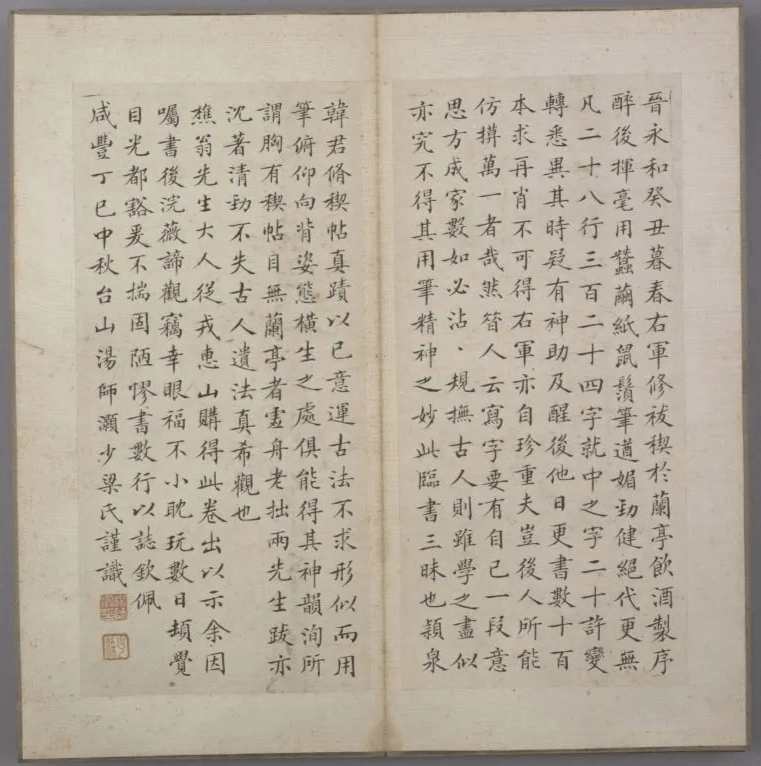 晉永和癸丑暮春右軍修祓禊於蘭亭飲酒製序
醉後揮毫用蠶繭紙鼠鬚筆遒媚勁健絕代更無
凡二十八行三百二十四字就中之字二十許變
轉悉異其時疑有神助及醒後他日更書數十百
本求再肖不可得右軍亦自珍重夫豈後人所能
仿摸萬一者哉然昝人云寫字要有自己一段意
思方成家數如必沾、規撫古人則雖學之盡似
亦究不得其用筆精神之妙此臨書三昧也潁泉
韓君脩稧帖真蹟以已意運古法不求形似而用
筆俯仰向背姿態橫生之處俱能得其神韻洵所
謂胸有稧帖目無蘭亭者虛舟老拙兩先生跋亦
沈著清勁不失古人遺法真希觀也
樵翁先生大人從戎惠山購得此卷出以示余因
囑書後浣薇諦觀竊幸眼福不小耽玩數日頓覺
目光都豁爰不揣固陋憀書數行以誌欽佩
咸豐丁巳中秋台山湯師灝少梁氏謹識